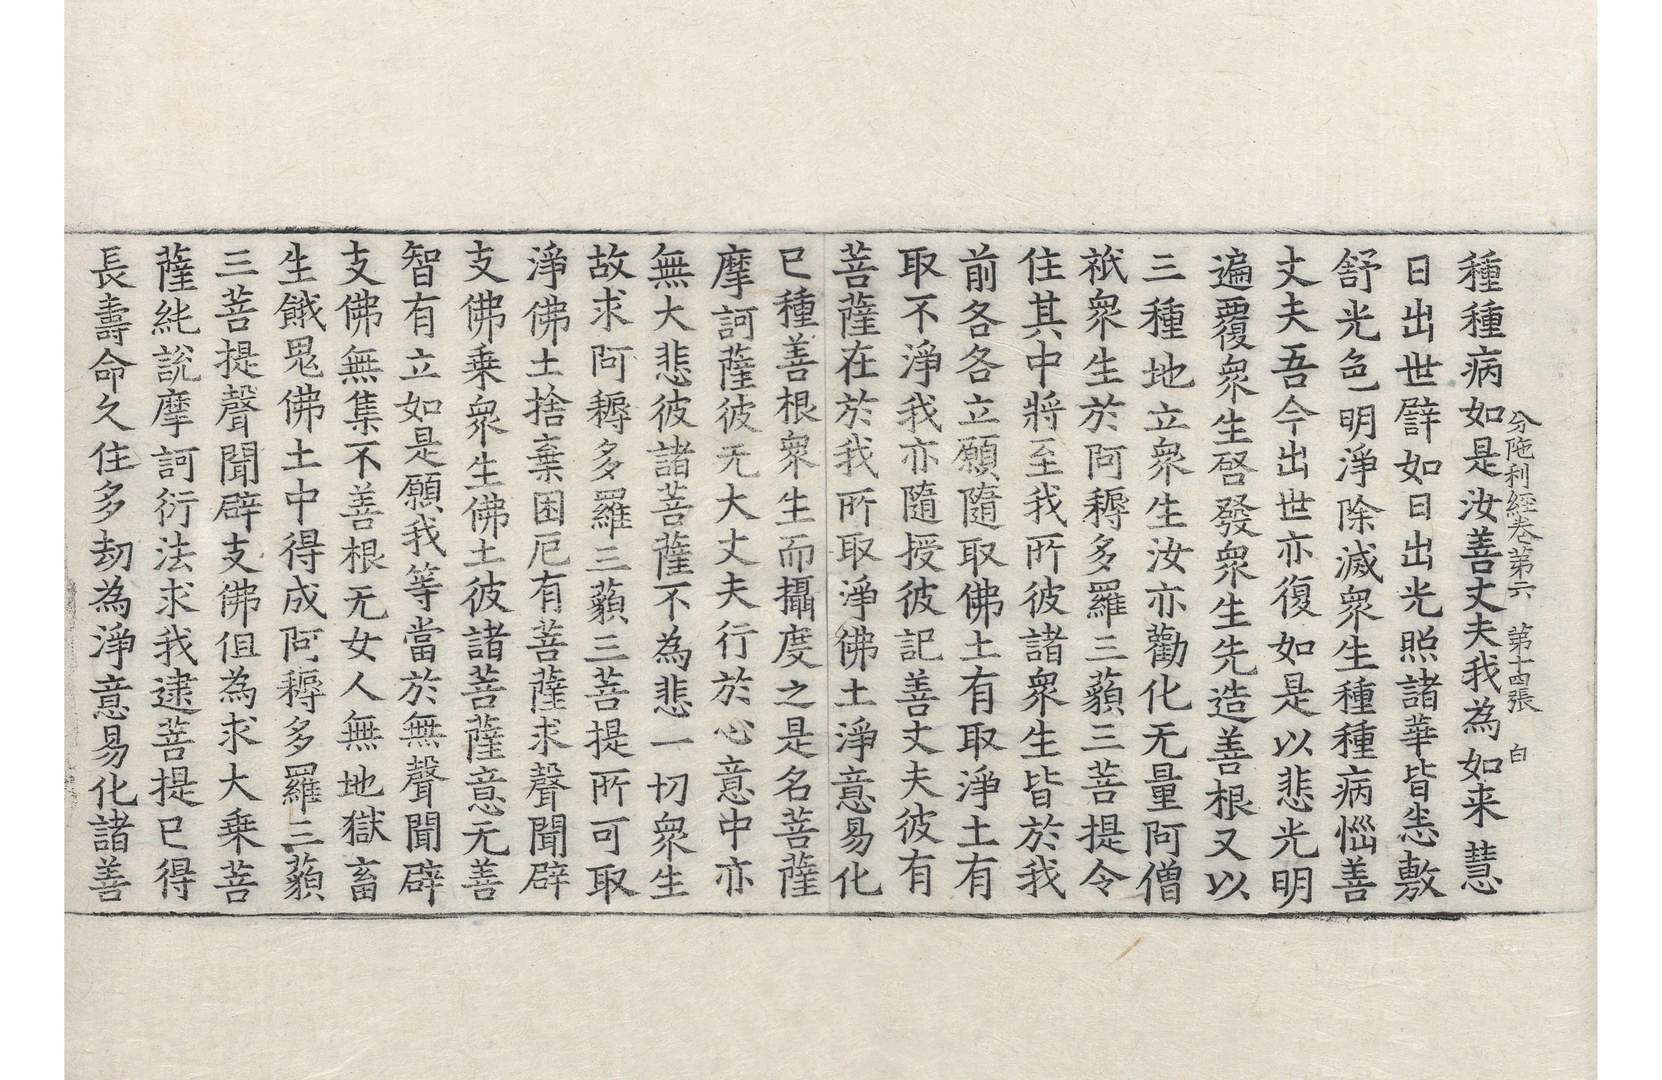 分陁利經卷第六　第十四張　白
種種病如是汝善丈夫我為如来慧
日出世譬如日出光照諸華皆悉敷
舒光色明淨除滅衆生種種病惱善
丈夫吾今出世亦復如是以悲光明
遍覆衆生啓發衆生先造善根又以
三種地立衆生汝亦勸化无量阿僧
祇衆生於阿耨多羅三藐三菩提令
住其中將至我所彼諸衆生皆於我
前各各立願隨取佛土有取淨土有
取不淨我亦隨授彼記善丈夫彼有
菩薩在於我所取淨佛土淨意易化
已種善根衆生而攝度之是名菩薩
摩訶薩彼无大丈夫行於心意中亦
無大悲彼諸菩薩不為悲一切衆生
故求阿耨多羅三藐三菩提所可取
淨佛土捨棄困厄有菩薩求聲聞辟
支佛乗衆生佛土彼諸菩薩意无善
智有立如是願我等當於無聲聞辟
支佛無集不善根无女人無地獄畜
生餓鬼佛土中得成阿耨多羅三藐
三菩提聲聞辟支佛但為求大乗菩
薩純說摩訶衍法求我逮菩提已得
長壽命久住多劫為淨意易化諸善